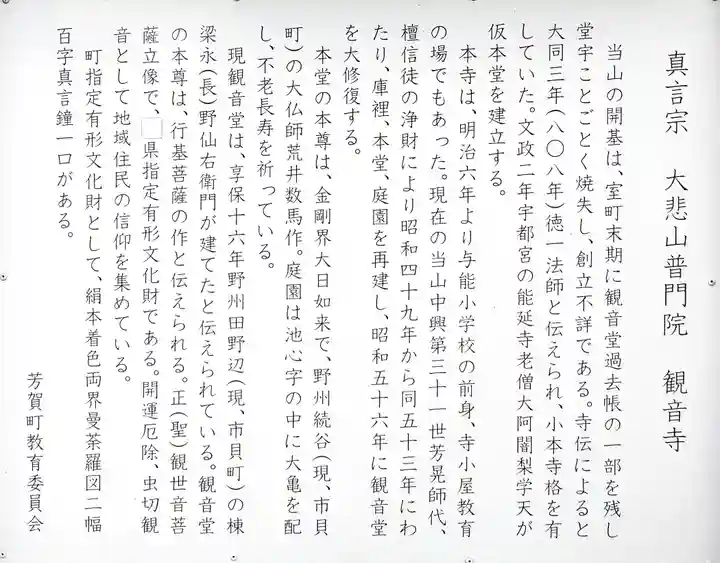 真言宗　大悲山普門院　観音寺
当山の開基は、室町末期に観音堂過去帳の一部を残し
堂宇ことごとく焼失し、創立不詳である。寺伝によると
大同三年(八〇八年)徳一法師と伝えられ、小本寺格を有
していた。文政二年宇都宮の能延寺老僧大阿闍梨学天が
仮本堂を建立する。
本寺は、明治六年より与能小学校の前身、寺小屋教育
の場でもあった。現在の当山中興第三十一世芳晃師代、
檀信徒の浄財により昭和四十九年から同五十三年にわ
たり、庫裡、本堂、庭園を再建し、昭和五十六年に観音堂
を大修復する。
本堂の本尊は、金剛界大日如来で、野州続谷(現、市貝
町)の大仏師荒井数馬作。庭園は池心字の中に大亀を配
し、不老長寿を祈っている。
現観音堂は、享保十六年野州田野辺(現、市貝町)の棟
梁永(長)野仙右衛門が建てたと伝えられている。観音堂
の本尊は、行基菩薩の作と伝えられる。正(聖)観世音菩
薩立像で、県指定有形文化財である。開運厄除、虫切観
音として地域住民の信仰を集めている。
町指定有形文化財として、絹本着色両界曼荼羅図二幅
百字真言鐘一口がある。
芳賀町教育委員会